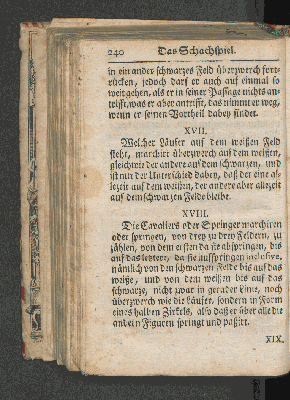 240 Das Schachspiel.
in ein ander schwarzes Feld überzwerch fort-
rücken, jedoch darf er auch auf einmal so
weit gehen, als er in seiner Passage nichts an-
trifft, was er aber antrifft, das nimmt er weg,
wenn er seinen Vortheil dabey findet.
XVII.
Welcher Läufer auf dem weißen Feld
steht, marchirt überzwerch auf dem weißen,
gleichwie der andere auf dem schwarzen, und
ist nur der Unterschied dabey, daß der eine al-
lezeit auf dem weißen, der andere aber allezeit
auf dem schwarzen Felde bleibe.
XVIII.
Die Cavaliers oder Springer marchiren
oder springen, von drey zu drey Feldern, zu
zählen, von dem ersten da sie abspringen, bis
auf das letztere, da sie aufspringen inclusive,
nämlich von den schwarzen Felde bis auf das
weiße, und von dem weißen bis auf das
schwarze, nicht zwar in gerader Linie, noch
überzwerch wie die Läufer, sondern in Form
eines halben Zirkels, also daß er über alle die
andern Figuren springt und paßirt.
XIX.